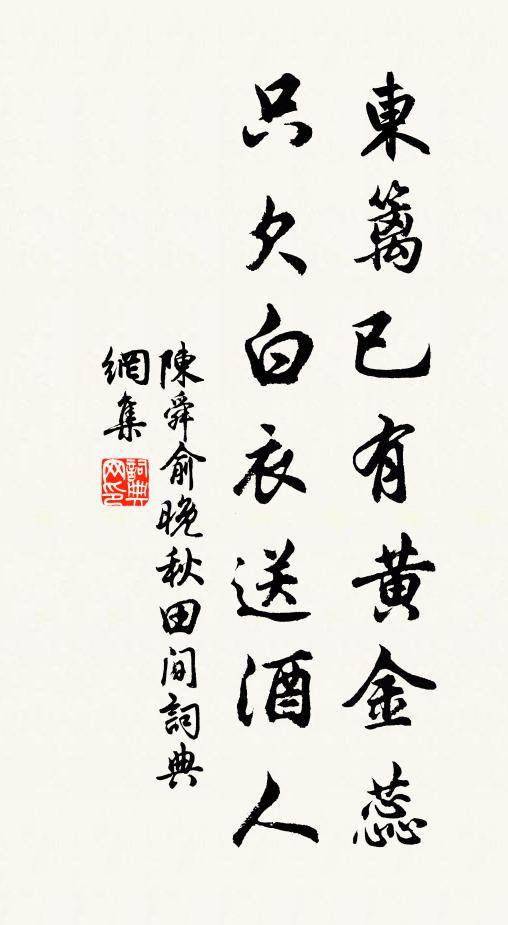 東籬已有黃金蕊
只欠白衣送酒人
陳舜俞晚秋田间詞典
網集
詞典
网印